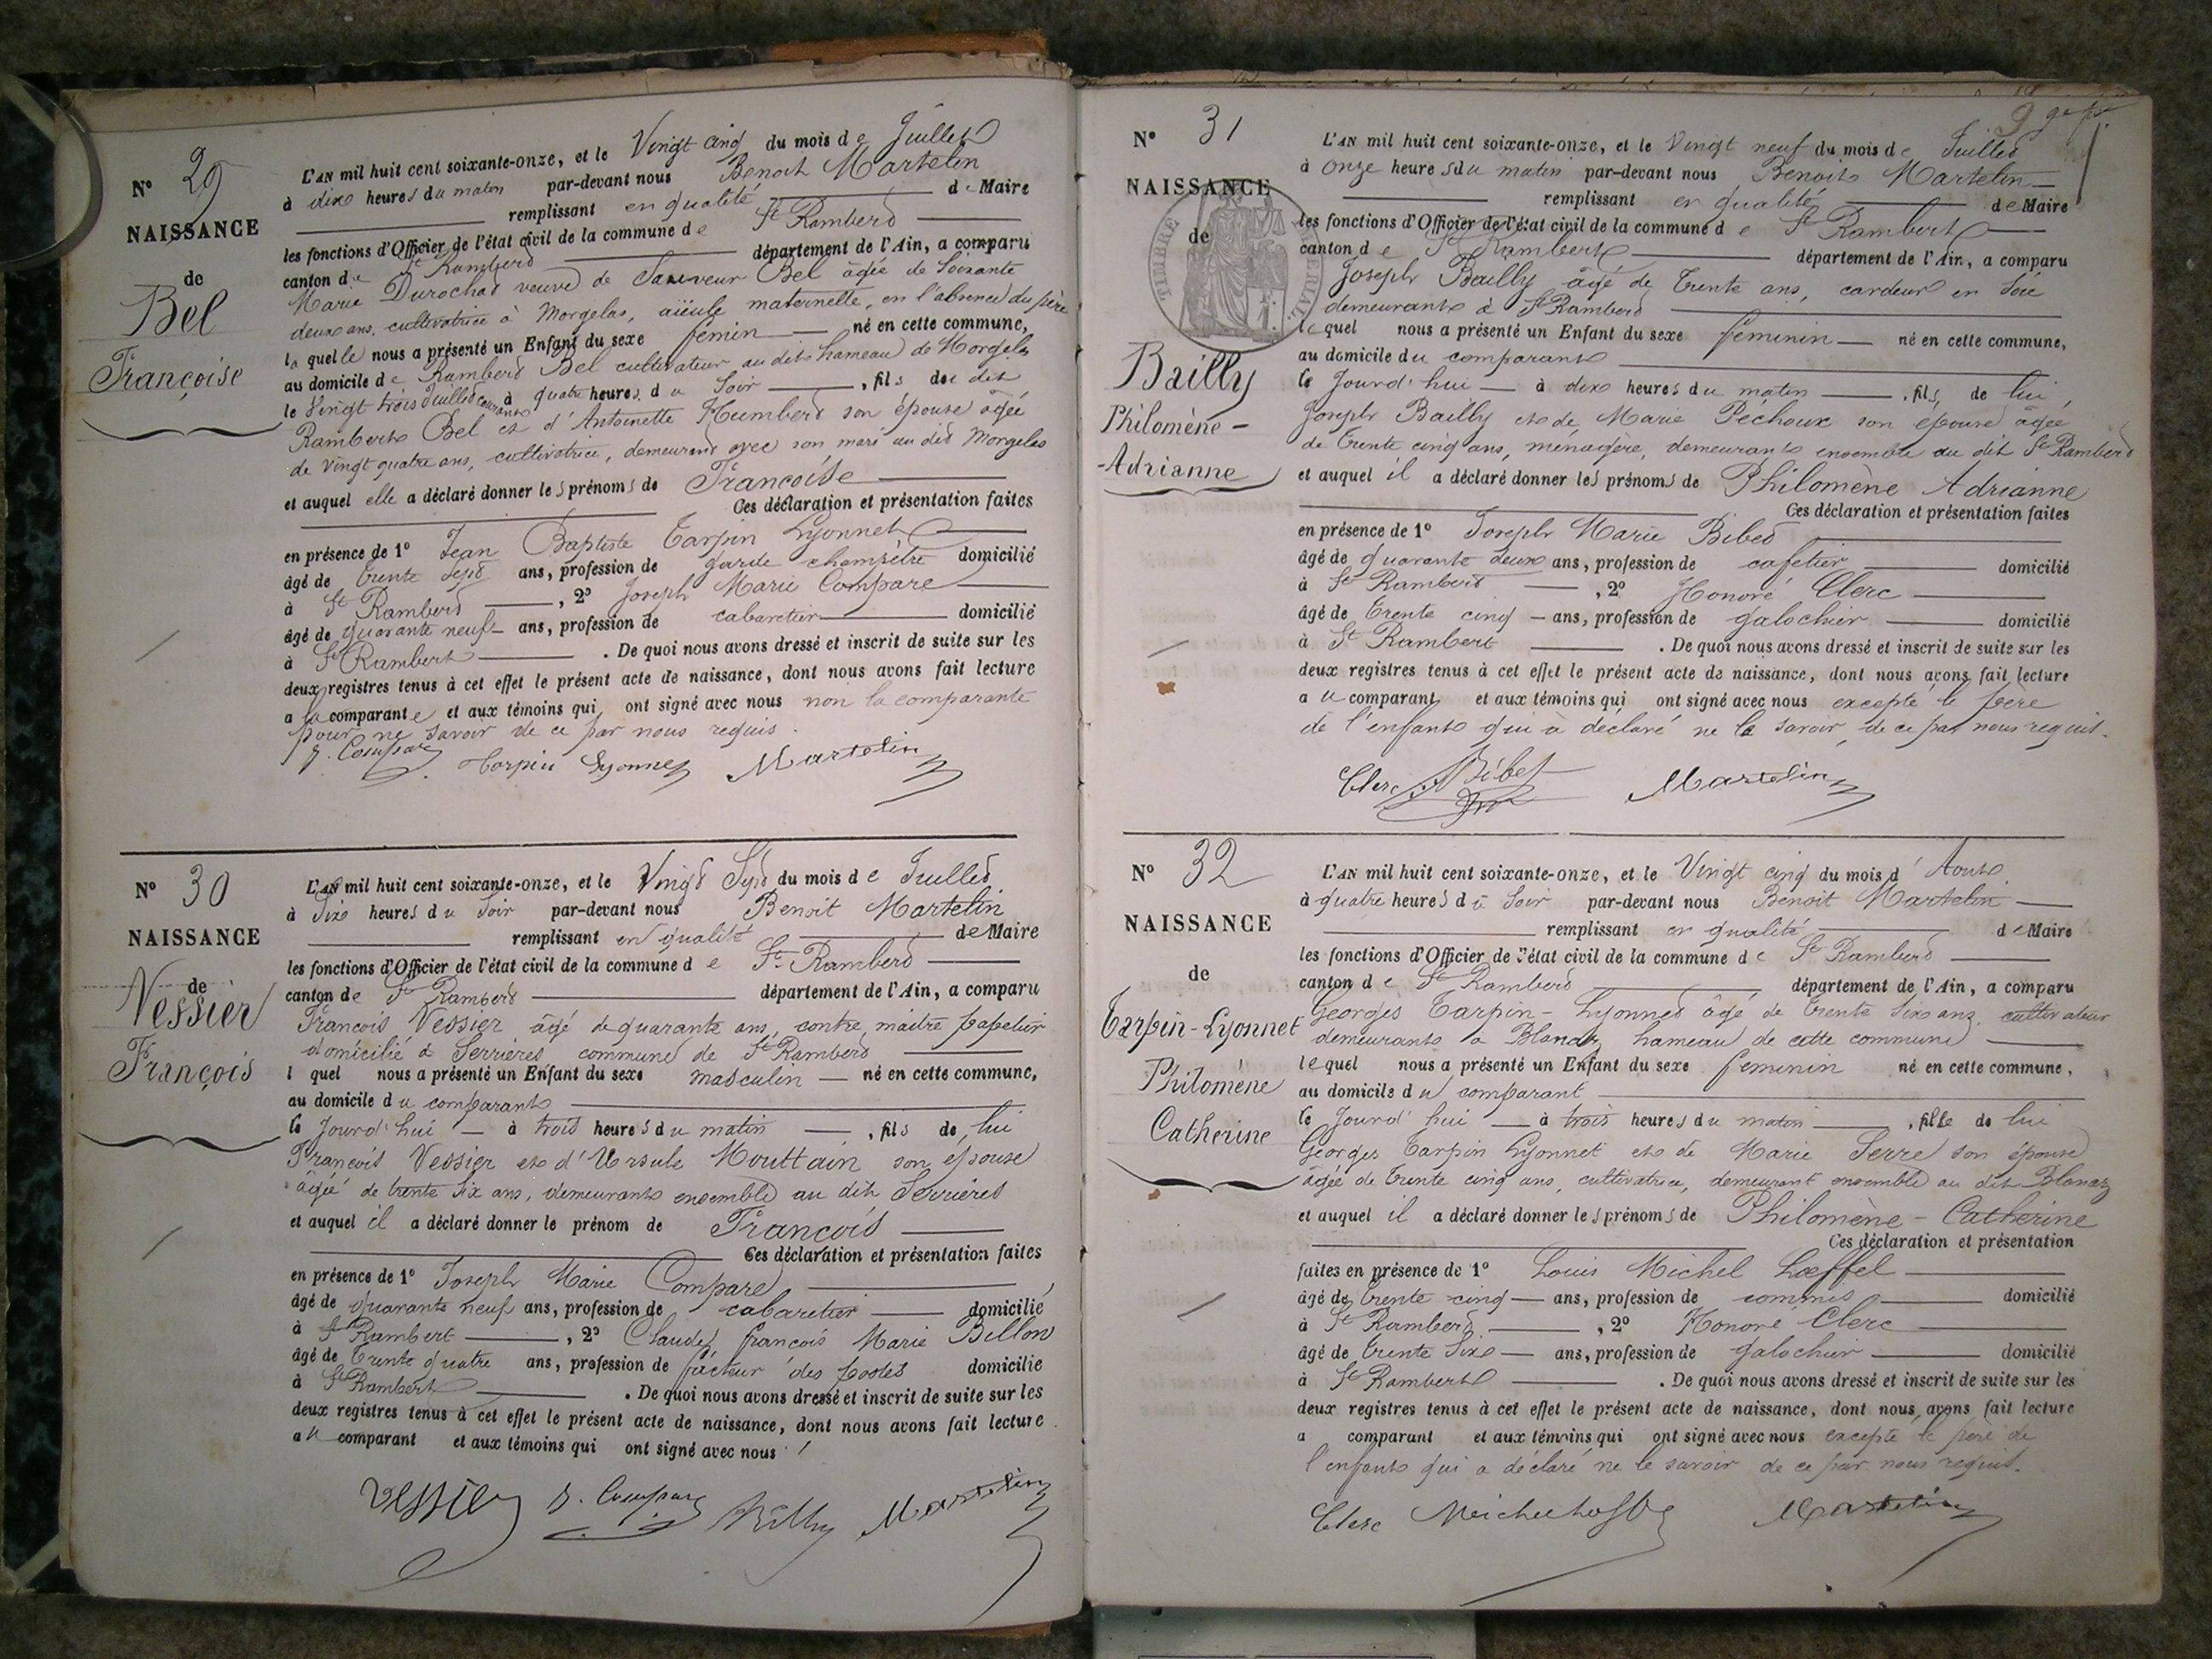 N° 29
NAISSANCE
de
Bel
Françoise
L'AN mil huit cent soixante-onze, et le Vingt cinq du mois de Juillet
à dix heures du matin par-devant nous Benoit Martelin
remplissant en qualité de Maire
les fonctions d'Officier de l'état civil de la commune de St Rambert
canton de St Rambert département de l'Ain, a comparu
Marie Durochat veuve de Sauveur Bel âgée de Soixante
deux ans, cultivatrice à Morgelas, aïeule maternelle, en l'absence du père
laquelle nous a présenté un Enfant du sexe fémin né en cette commune,
au domicile de Rambert Bel cultivateur au dit hameau de Morgelas
le Vingt trois Juillet courant à quatre heures du Soir, fils du dit
Rambert Bel et d'Antoinette Humbert son épouse âgée
de vingt quatre ans, cultivatrice, demeurant avec son mari au dit Morgelas
et auquel elle a déclaré donner les prénoms de Françoise
Ces déclaration et présentation faites
en présence de 1° Jean Baptiste Tarpin Lyonnet
âgé de trente sept ans, profession de garde champêtre domicilié
à St Rambert, 2° Joseph Marie Compare
âgé de quarante neuf ans, profession de cabaretier domicilié
à St Rambert. De quoi nous avons dressé et inscrit de suite sur les
deux registres tenus à cet effet le présent acte de naissance, dont nous avons fait lecture
a la comparante et aux témoins qui ont signé avec nous non la comparante
pour ne savoir de ce par nous requis.
J. Compare Tarpin Lyonnet Martelin
N° 30
NAISSANCE
de
Vessier
François
L'AN mil huit cent soixante-onze, et le Vingt Sept du mois de Juillet
à Six heures du Soir par-devant nous Benoit Martelin
remplissant en qualité de Maire
les fonctions d'Officier de l'état civil de la commune de St Rambert
canton de St Rambert département de l'Ain, a comparu
François Vessier âgé de quarante ans, contre maitre papetier
domicilié à Serrières commune de St Rambert
lquel nous a présenté un Enfant du sexe masculin né en cette commune,
au domicile du comparant
le Jourd'hui à trois heures du matin, fils de lui
François Vessier et d'Ursule Mouttain son épouse
âgée de trente six ans, demeurants ensemble au dit Serrières
et auquel il a déclaré donner le prénom de François
Ces déclaration et présentation faites
en présence de 1° Joseph Marie Compare
âgé de quarante neuf ans, profession de cabaretier domicilié
à St Rambert, 2° Claude, françois Marie Billon
âgé de trente quatre ans, profession de facteur des postes domicilié
à St Rambert. De quoi nous avons dressé et inscrit de suite sur les
deux registres tenus à cet effet le présent acte de naissance, dont nous avons fait lecture
au comparant et aux témoins qui ont signé avec nous
Vessier J. Compare Martelin
9
N° 31
NAISSANCE
de
TIMBRE IMPÉRIAL
Bailly
Philomène-
-Adrianne
L'AN mil huit cent soixante-onze, et le Vingt neuf du mois de Juillet
à onze heures du matin par-devant nous Benoit Martelin
remplissant en qualité de Maire
les fonctions d'Officier de l'état civil de la commune de St Rambert
canton de St Rambert département de l'Ain, a comparu
Joseph Bailly âgé de trente ans, cardeur en Soie
demeurants à St Rambert
lequel nous a présenté un Enfant du sexe féminin né en cette commune,
au domicile du comparant
le Jourd'hui à dix heures du matin, fils de lui,
Joseph Bailly et de Marie Péchoux son épouse âgée
de trente cinq ans, ménagère, demeurants ensemble au dit St Rambert
et auquel il a déclaré donner les prénoms de Philomène Adrianne
Ces déclaration et présentation faites
en présence de 1° Joseph Marie Bibet
âgé de quarante deux ans, profession de cafetier domicilié
à St Rambert, 2° Honoré Clerc
âgé de trente cinq ans, profession de galochier domicilié
à St Rambert. De quoi nous avons dressé et inscrit de suite sur les
deux registres tenus à cet effet le présent acte de naissance, dont nous avons fait lecture
a u comparant et aux témoins qui ont signé avec nous excepté le père
de l'enfant qui a déclaré ne le savoir, de ce par nous requis.
Clerc Bibet Martelin
N° 32
NAISSANCE
de
Tarpin-Lyonnet
Philomène
Catherine
L'AN mil huit cent soixante-onze, et le Vingt cinq du mois d'Aout
à quatre heures du Soir par-devant nous Benoit Martelin
remplissant en qualité de Maire
les fonctions d'Officier de l'état civil de la commune de St Rambert
canton de St Rambert département de l'Ain, a comparu
Georges Tarpin-Lyonnet âgé de trente Six ans, cultivateur
demeurants à Blanaz hameau de cette commune
lequel nous a présenté un Enfant du sexe feminin né en cette commune,
au domicile du comparant
le Jourd'hui à trois heures du matin, fille de lui
Georges Tarpin Lyonnet et de Marie Serre son épouse
âgée de trente cinq ans, cultivatrice, demeurant ensemble au dit Blanaz
et auquel il a déclaré donner les prénoms de Philomène-Catherine
Ces déclaration et présentation
faites en présence de 1° Louis Michel Lœffel
âgé de trente cinq ans, profession de commis domicilié
à St Rambert, 2° Honoré Clerc
âgé de trente Six ans, profession de galochier domicilié
à St Rambert. De quoi nous avons dressé et inscrit de suite sur les
deux registres tenus à cet effet le présent acte de naissance, dont nous avons fait lecture
a comparant et aux témoins qui ont signé avec nous excepté le père de
l'enfant qui a déclaré ne le savoir de ce par nous requis.
Clerc Martelin